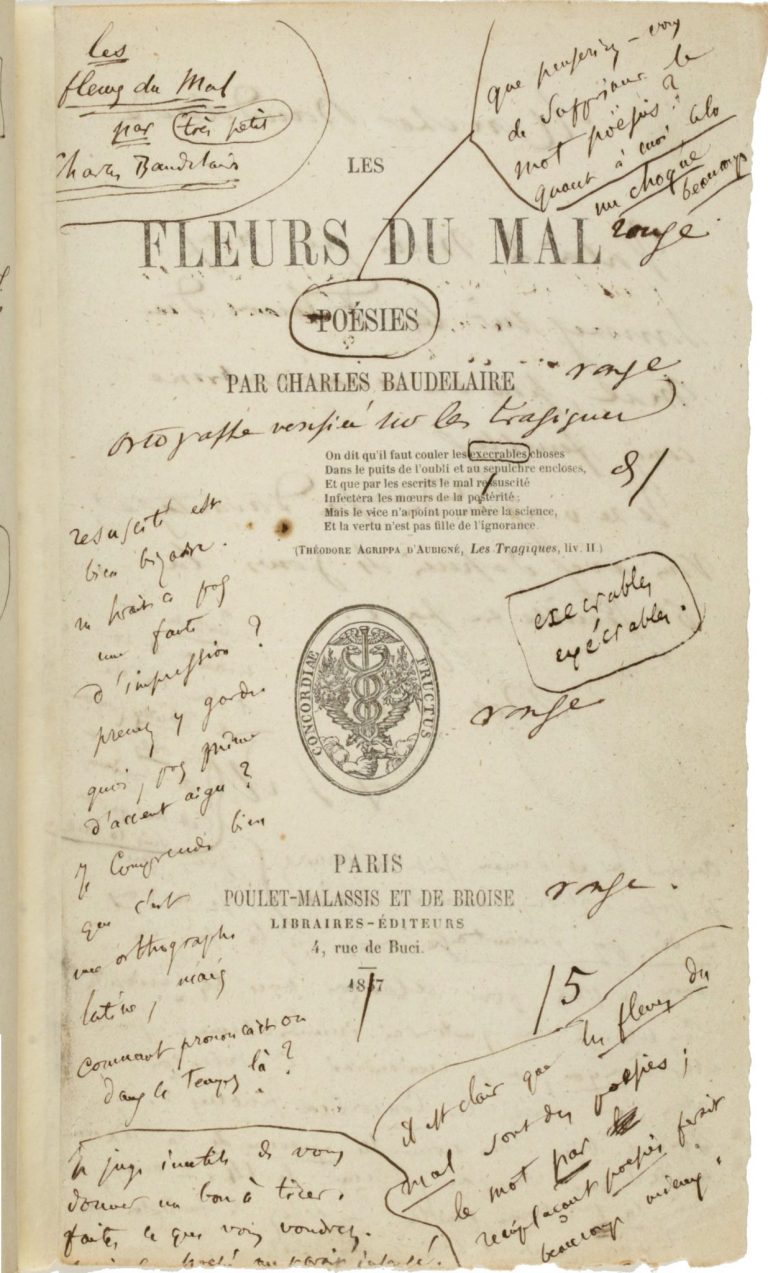 les
fleurs du Mal
par très petit
Charles Baudelaire
que penseriez-vous
de supprimer le
mot poësies ?
quant à moi cela
me choque
beaucoup
LES
FLEURS DU MAL
rouge.
POÉSIES
PAR CHARLES BAUDELAIRE
rouge
ortographe verifiée sur les tragiques
On dit qu'il faut couler les execrables choses
Dans le puits de l'oubli et au sepulchre encloses,
Et que par les escrits le mal resuscité
Infectera les mœurs de la postérité ;
Mais le vice n'a point pour mère la science,
Et la vertu n'est pas fille de l'ignorance
(THÉODORE AGRIPPA D'AUBIGNÉ, Les Tragiques, liv. II)
resuscité est
bien bizarre.
ne serait-ce pas
une faute
d'impression ?
prenez y garde
quoi, pas même
d'accent aigu ?
je comprends bien
que c'est
une orthographe
latine, mais
comment prononçait-on
dans le temps là ?
execrables
exécrables.
CONCORDIAE FRUCTUS
rouge
PARIS
POULET-MALASSIS ET DE BROISE
rouge.
LIBRAIRES-ÉDITEURS
4, rue de Buci.
1857
/5
il est clair que les fleurs du
mal sont des poësies ;
le mot par
remplaçant poësies ferait
beaucoup mieux.
Je juge inutile de vous
donner un bon à tirer.
faites ce que vous voudrez.